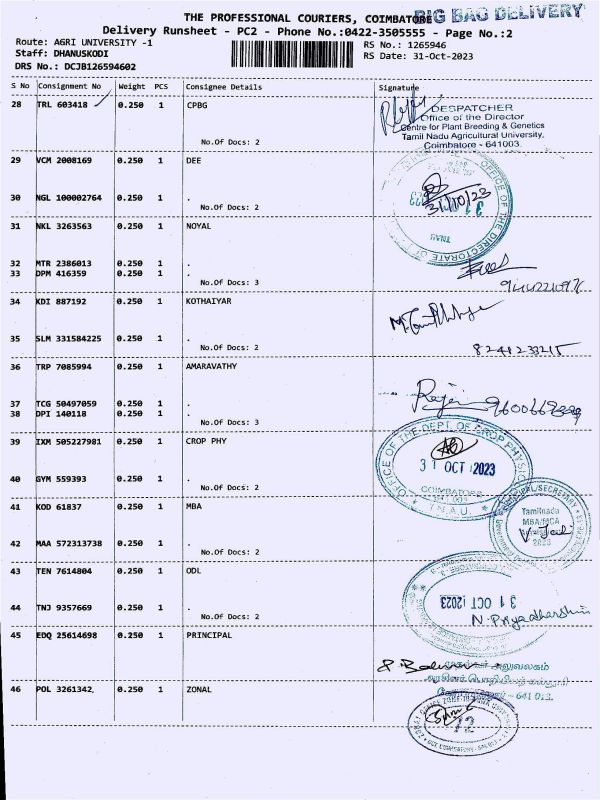 THE PROFESSIONAL COURIERS, COIMBATORE
BIG BAG DELIVERY
Delivery Runsheet - PC2 - Phone No.:0422-3505555 - Page No.:2
Route: AGRI UNIVERSITY -1
RS No.: 1265946
Staff: DHANUSKODI
RS Date: 31-Oct-2023
DRS No.: DCJB126594602
S No Consignment No Weight PCS Consignee Details Signature
28 TRL 603418 0.250 1 CPBG
DESPATCHER
Office of the Director
Centre for Plant Breeding & Genetics
Tamil Nadu Agricultural University,
Coimbatore - 641003.
No.Of Docs: 2
29 VCM 2008169 0.250 1 DEE
OFFICE OF THE DIRECTORATE OF
31/10/23
TNAU
30 NGL 100002764 0.250 1 .
No.Of Docs: 2
31 NKL 3263563 0.250 1 NOYAL
32 MTR 2386013 0.250 1 .
33 DPM 416359 0.250 1 .
No.Of Docs: 3
34 KDI 887192 0.250 1 KOTHAIYAR
35 SLM 331584225 0.250 1 .
8241233215
No.Of Docs: 2
36 TRP 7085994 0.250 1 AMARAVATHY
37 TCG 50497059 0.250 1 .
38 DPI 140118 0.250 1 .
No.Of Docs: 3
39 IXM 505227981 0.250 1 CROP PHY
OFFICE OF THE DEPT. OF CROP PHYSIO
31 OCT 2023
COIMBATORE
T.N.A.U.
40 GYM 559393 0.250 1 .
No.Of Docs: 2
41 KOD 61837 0.250 1 MBA
Tamilnadu
MBA/MCA
2023
42 MAA 572313738 0.250 1 .
No.Of Docs: 2
43 TEN 7614804 0.250 1 ODL
31 OCT 2023
44 TNJ 9357669 0.250 1 .
N. Priyadharshini
No.Of Docs: 2
45 EDQ 25614698 0.250 1 PRINCIPAL
அலுவலகம்
- 641 013.
46 POL 3261342 0.250 1 ZONAL
12